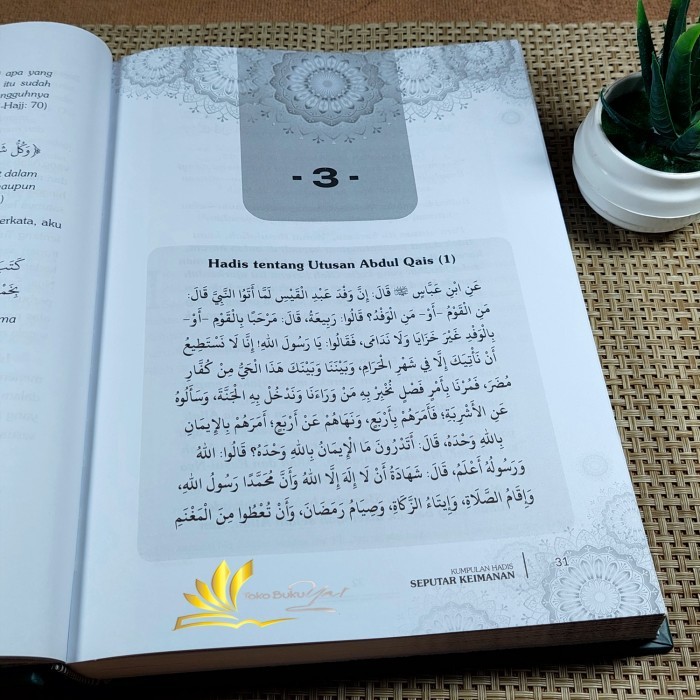 apa yang
itu sudah
ngguhnya
-Hajj: 70)
﴿وَكُلُّ
t dalam
aupun
)
erkata, aku
كَتَبَ
ma
- 3 -
Hadis tentang Utusan Abdul Qais (1)
عَنِ ابْنِ عَبَّاسٍ ﷺ قَالَ: إِنَّ وَفْدَ عَبْدِ الْقَيْسِ لَمَّا أَتَوُا النَّبِيَّ قَالَ:
مَنِ الْقَوْمُ -أَوْ- مَنِ الْوَفْدُ؟ قَالُوا: رَبِيعَةُ، قَالَ: مَرْحَبًا بِالْقَوْمِ -أَوْ-
بِالْوَفْدِ غَيْرَ خَزَايَا وَلَا نَدَامَى، فَقَالُوا: يَا رَسُولَ اللهِ! إِنَّا لَا نَسْتَطِيعُ
أَنْ نَأْتِيَكَ إِلَّا فِي شَهْرِ الْحَرَامِ، وَبَيْنَنَا وَبَيْنَكَ هَذَا الْحَيُّ مِنْ كُفَّارِ
مُضَرَ، فَمُرْنَا بِأَمْرٍ فَصْلٍ نُخْبِرْ بِهِ مَنْ وَرَاءَنَا وَنَدْخُلْ بِهِ الْجَنَّةَ، وَسَأَلُوهُ
عَنِ الْأَشْرِبَةِ؛ فَأَمَرَهُمْ بِأَرْبَعٍ، وَنَهَاهُمْ عَنْ أَرْبَعٍ؛ أَمَرَهُمْ بِالْإِيمَانِ
بِاللهِ وَحْدَهُ، قَالَ: أَتَدْرُونَ مَا الْإِيمَانُ بِاللهِ وَحْدَهُ؟ قَالُوا: اللهُ
وَرَسُولُهُ أَعْلَمُ، قَالَ: شَهَادَةُ أَنْ لَا إِلَهَ إِلَّا اللهُ وَأَنَّ مُحَمَّدًا رَسُولُ اللهِ،
وَإِقَامُ الصَّلَاةِ، وَإِيتَاءُ الزَّكَاةِ، وَصِيَامُ رَمَضَانَ، وَأَنْ تُعْطُوا مِنَ الْمَغْنَمِ
KUMPULAN HADIS
SEPUTAR KEIMANAN
31
Toko Buku